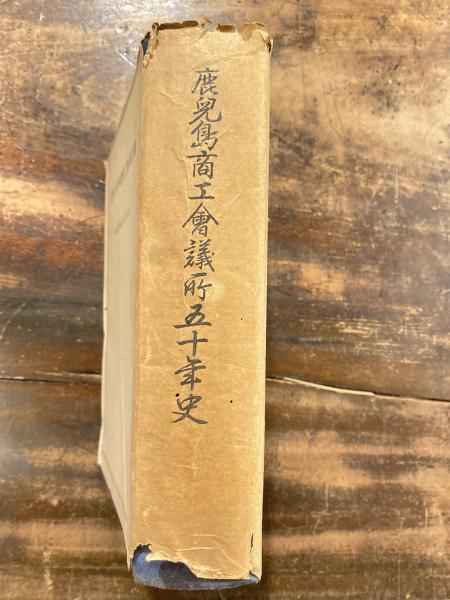 鹿兒島商工會議所五十年史